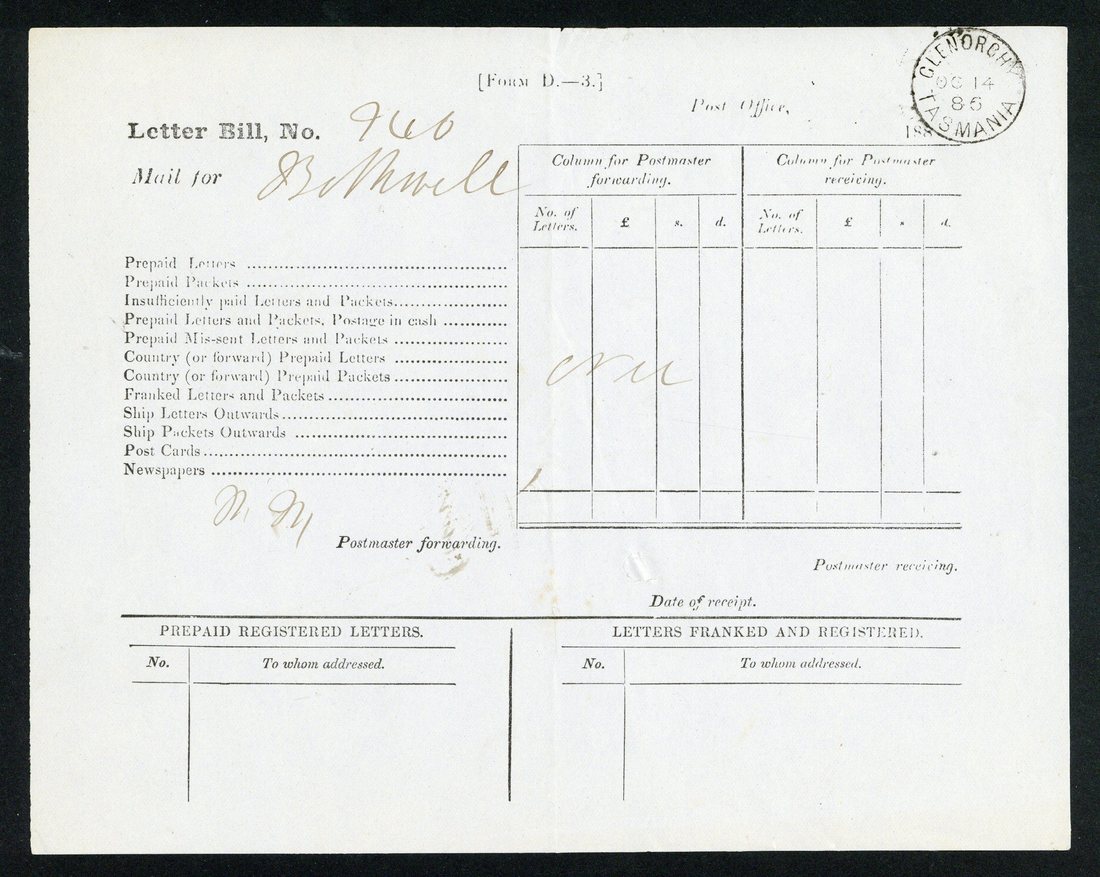 [FORM D.—3.]
GLENORCHY
OC 14
86
TASMANIA
Post Office,
188
Letter Bill, No.
Mail for Bothwell
Column for Postmaster forwarding.
Column for Postmaster receiving.
No. of Letters. £ s. d. No. of Letters. £ s. d.
Prepaid Letters
Prepaid Packets
Insufficiently paid Letters and Packets
Prepaid Letters and Packets, Postage in cash
Prepaid Mis-sent Letters and Packets
Country (or forward) Prepaid Letters
Country (or forward) Prepaid Packets
Franked Letters and Packets
Ship Letters Outwards
Ship Packets Outwards
Post Cards
Newspapers
Postmaster forwarding.
Postmaster receiving.
Date of receipt.
PREPAID REGISTERED LETTERS.
LETTERS FRANKED AND REGISTERED.
No. To whom addressed.
No. To whom addressed.